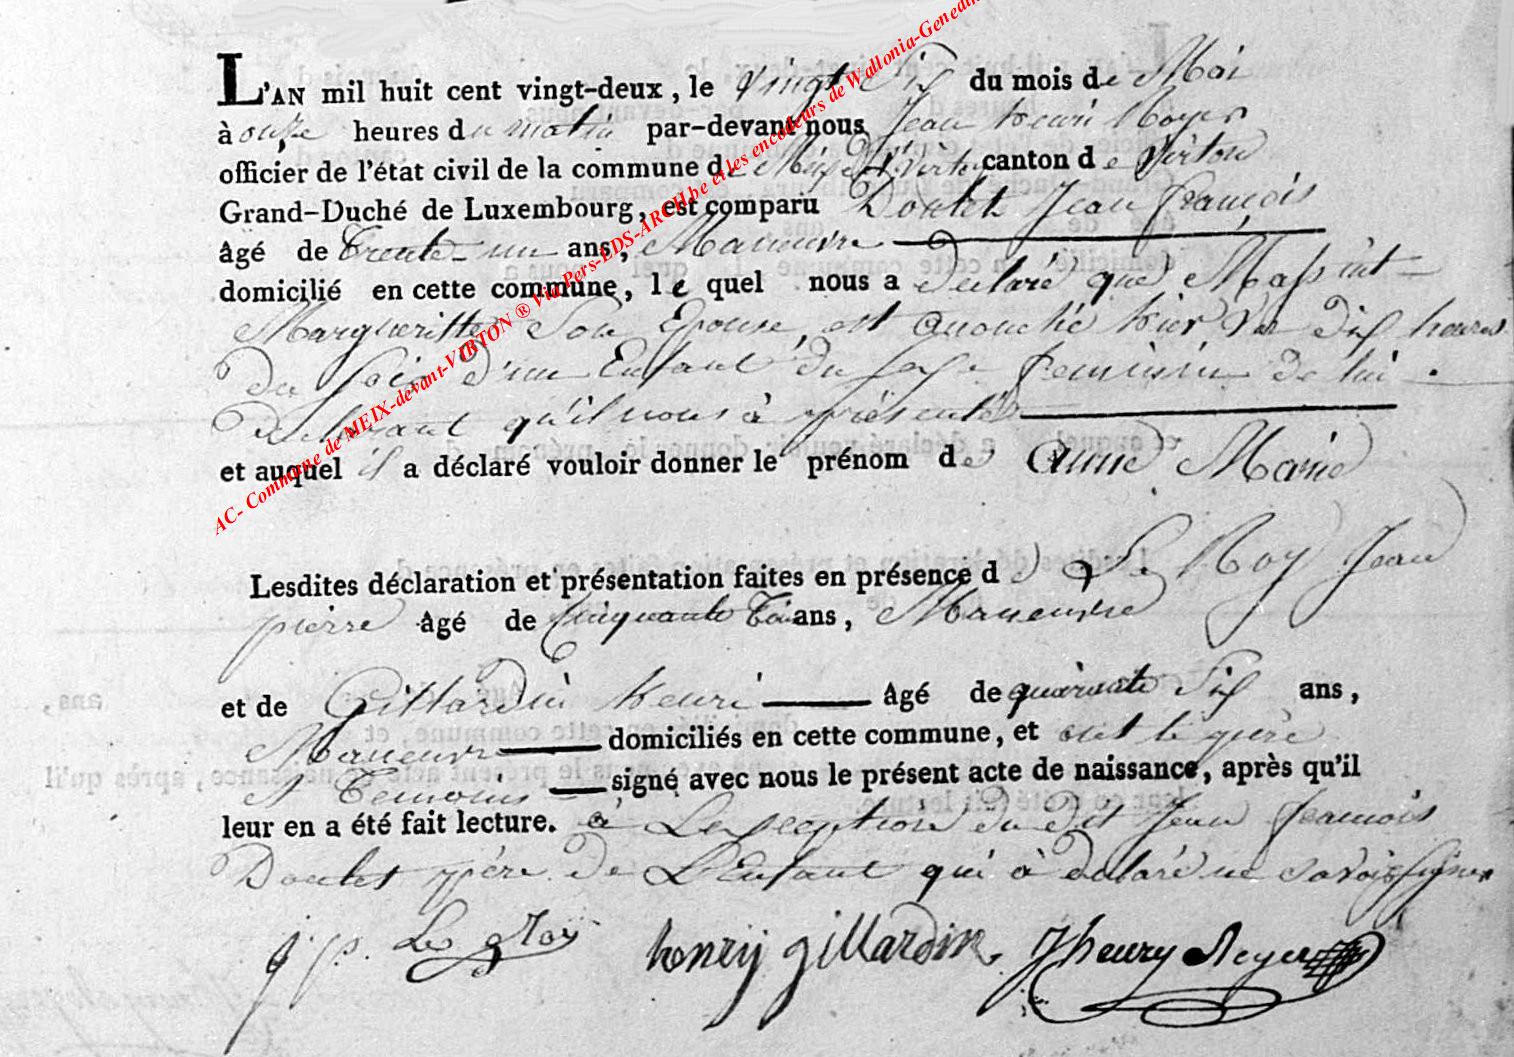 L'AN mil huit cent vingt-deux, le vingt Six du mois de Mai
à onze heures du matin par-devant nous Jean henri
officier de l'état civil de la commune de Meix Dt Virton canton de Virton
Grand-Duché de Luxembourg, est comparu Doulet Jean françois
âgé de Trente un ans, Maneuvre
domicilié en cette commune, le quel nous a déclaré que Massint
Margueritte Son Epouse, est accouché hier Ver dix heures
Du soir d'un Enfant du sexe feminin de lui
declarant qu'il nous à présenté
et auquel il a déclaré vouloir donner le prénom de anne Marie
Lesdites déclaration et présentation faites en présence de Le Roy Jean
pierre âgé de Cinquante ans, Maneuvre
et de Gillardin henri âgé de quarante Six ans,
Maneuvre domiciliés en cette commune, et ont le père
et Temoins signé avec nous le présent acte de naissance, après qu'il
leur en a été fait lecture. à L'exseption du dit Jean françois
Doulet père de L'Enfant qui à déclaré ne savoir signer
j. p. Le Roy henry gillardin. Jhenry
AC- Commune de MEIX-devant-VIRTON ® Via Pers-EDS-ARCH.be et les encodeurs de Wallonia-Genedi